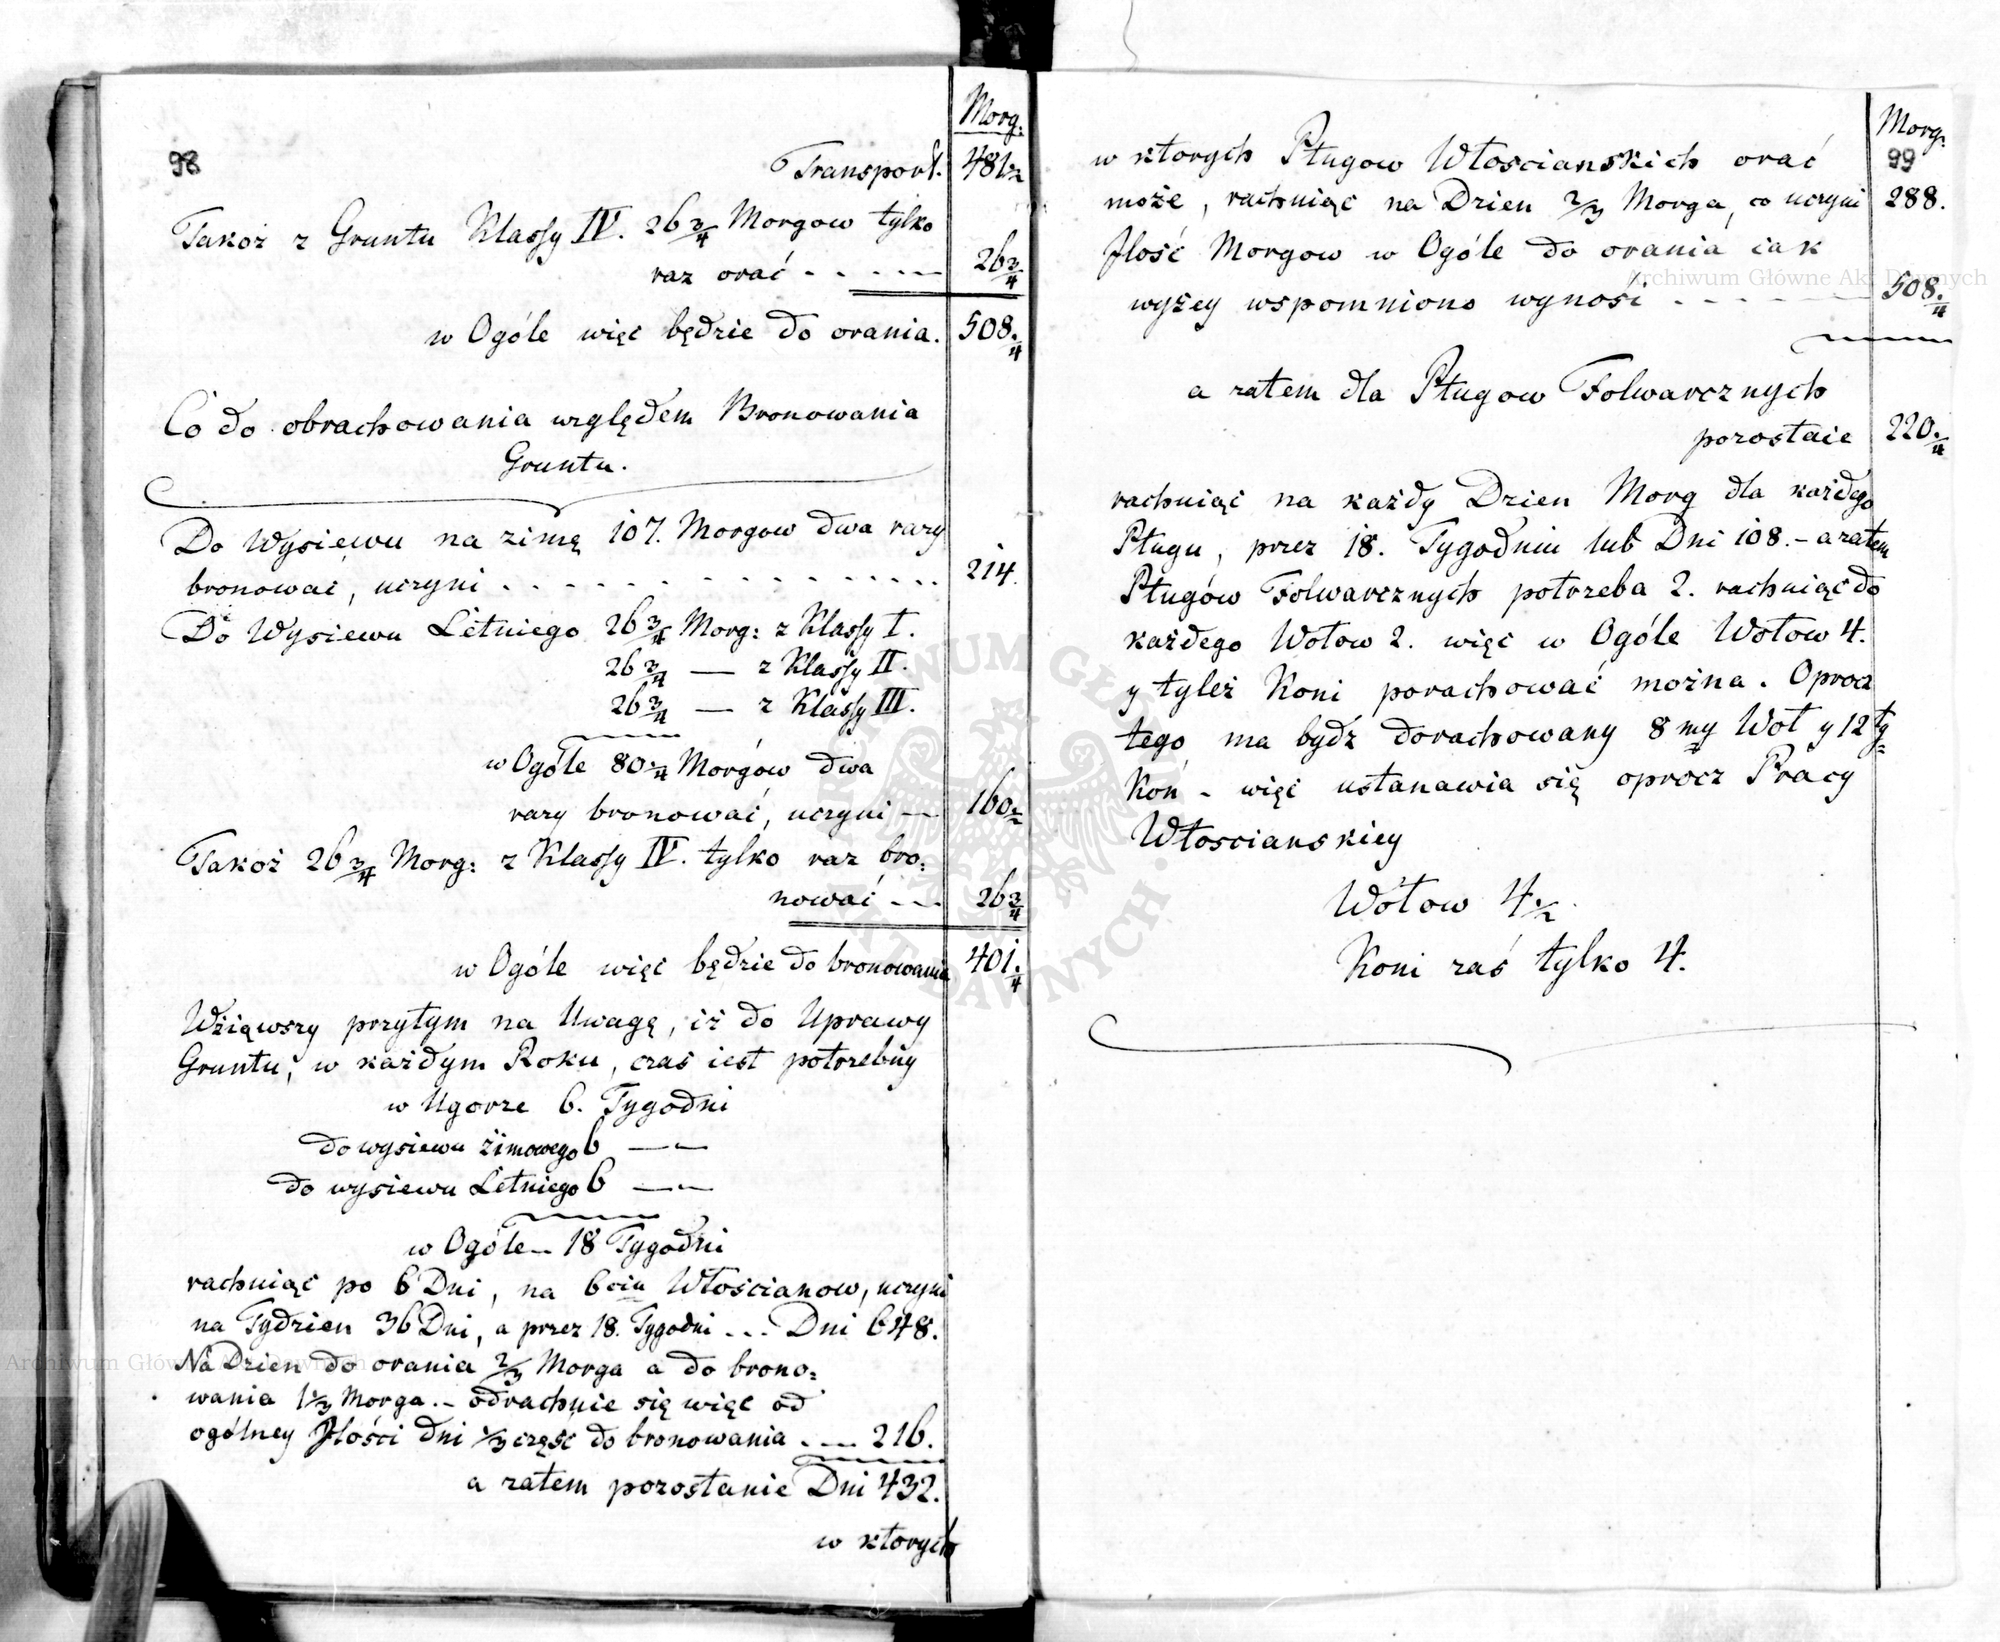 98
Morg:
Transport. 481½
Takoż z Gruntu Klassy IV. 26¾ Morgow tylko
raz orać . . . . . 26¾
w Ogóle więc będzie do orania. 508.¼
Co do obrachowania względem Bronowania
Gruntu.
Do Wysiewu na zimę 107. Morgow dwa razy
bronować, uczyni . . . . . . . . . . . . 214.
Do Wysiewu Letniego 26¾ Morg: z Klassy I.
26¾ — z Klassy II.
26¾ — z Klassy III.
w Ogóle 80.¼ Morgów dwa
razy bronować, uczyni — 160½
Takoż 26¾ Morg: z Klassy IV. tylko raz bro:
nować . . . 26¾
w Ogóle więc będzie do bronowania 401.¼
Wziąwszy przytym na Uwagę, iż do Uprawy
Gruntu, w każdym Roku, czas iest potrzebny
w Ugorze 6. Tygodni
do wysiewu zimowego 6 — —
do wysiewu Letniego 6 — —
w Ogóle — 18 Tygodni
rachuiąc po 6 Dni, na 6ciu Włościanow, uczyni
na Tydzien 36 Dni, a przez 18. Tygodni . . . Dni 648.
Na Dzien do orania ⅔ Morga a do brono:
wania 1⅓ Morga. – odrachuie się więc od
ogólney Jlości dni ⅓ część do bronowania . . . 216.
a zatem pozostanie Dni 432.
w ktorych
Morg:
99
w ktorych Pługow Włoscianskich orać
może, rachuiąc na Dzien ⅔ Morga, co uczyni 288.
Jlość Morgow w Ogóle do orania iak
wyżey wspomniono wynosi . . . . . . 508.¼
a zatem dla Pługow Folwarcznych
pozostaie 220.¼
rachuiąc na każdy Dzien Morg dla każdego
Pługu, przez 18. Tygodniu lub Dni 108. – a zatem
Pługów Folwarcznych potrzeba 2. rachuiąc do
każdego Wołow 2. więc w Ogóle Wołow 4.
y tyleż Koni porachować można. Oprocz
tego ma bydź dorachowany 8my Woł y 12ty
Koń – więc ustanawia się oprocz Pracy
Włoscianskiey
Wołow 4.½
Koni zaś tylko 4.
Archiwum Główne Akt Dawnych
Archiwum Główne Akt Dawnych
ARCHIWUM GŁÓWNE AKT DAWNYCH